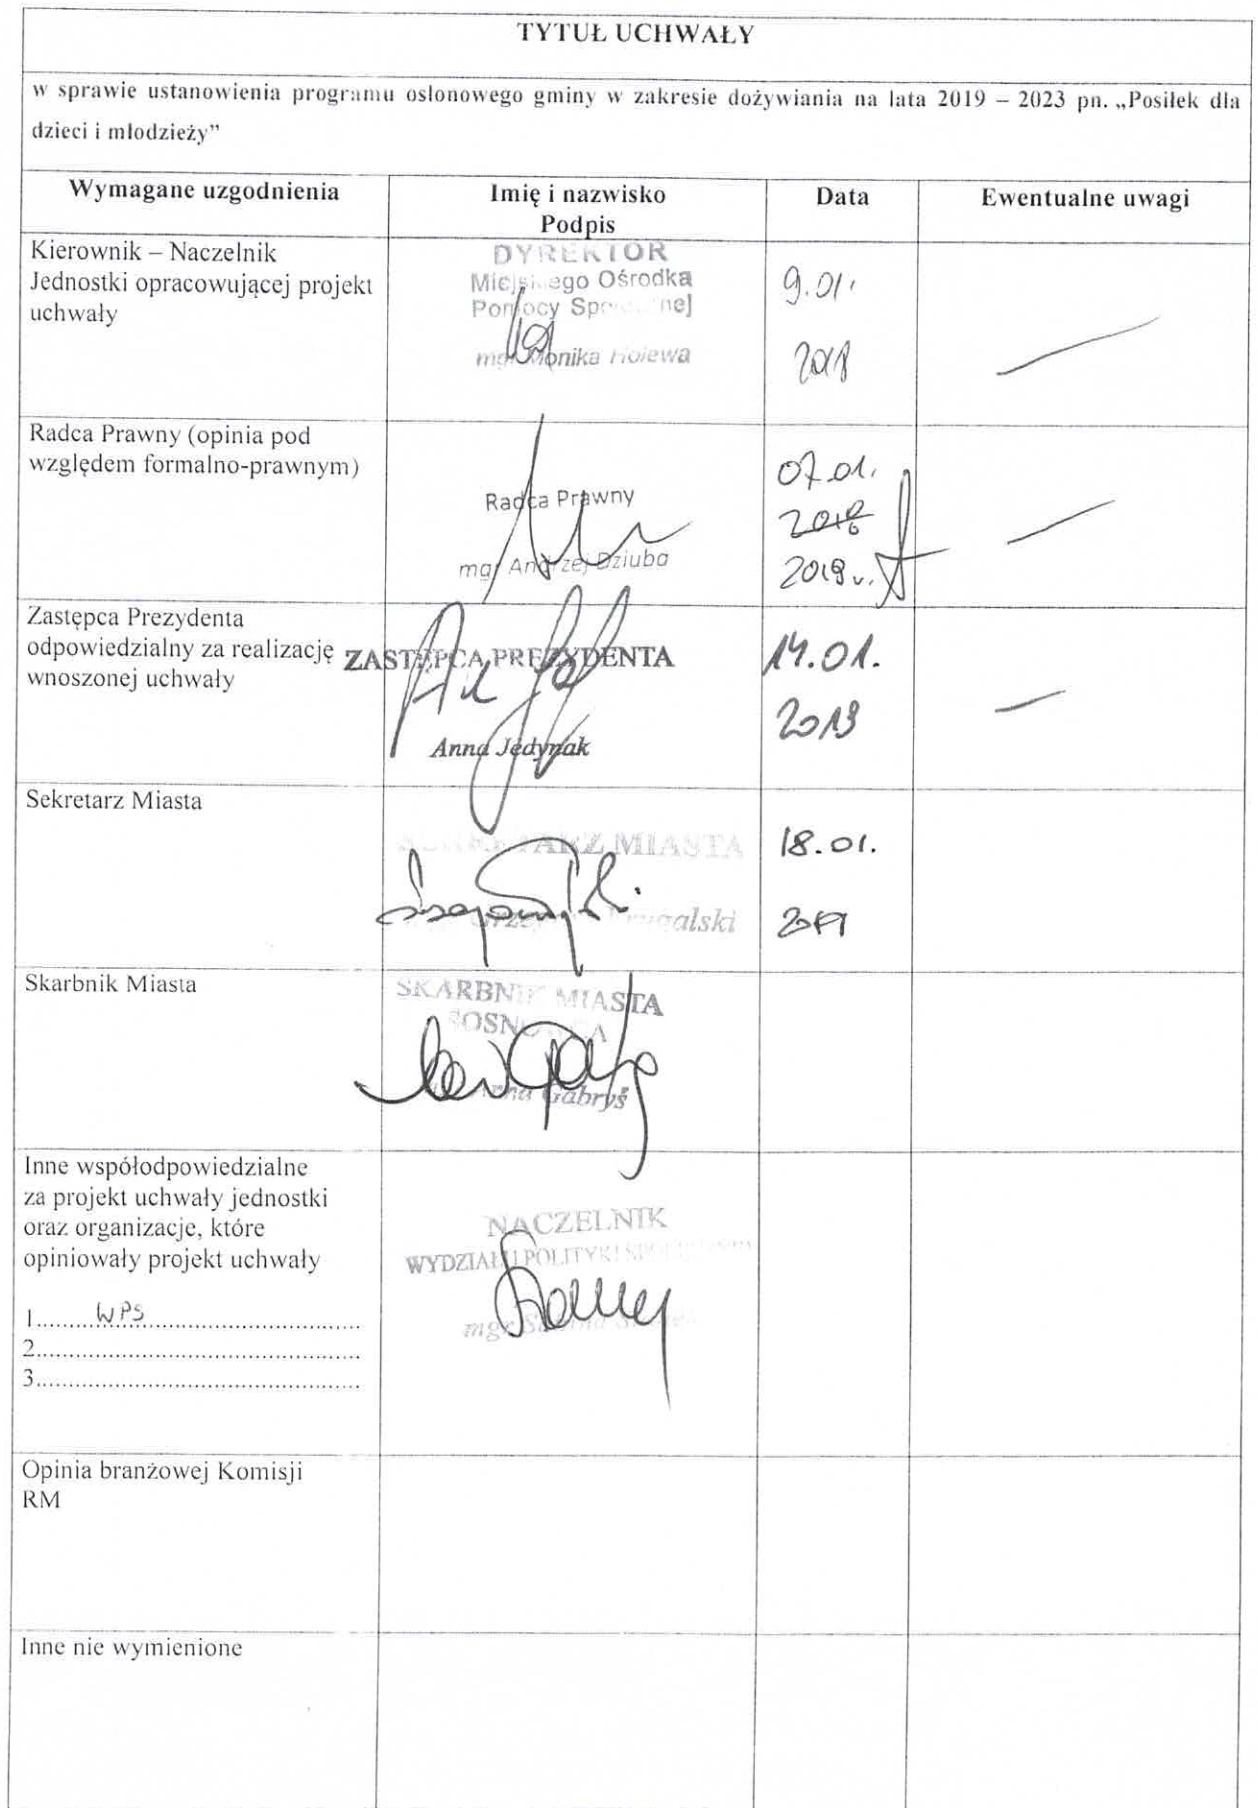 TYTUŁ UCHWAŁY
w sprawie ustanowienia programu osłonowego gminy w zakresie dożywiania na lata 2019 – 2023 pn. „Posiłek dla
dzieci i młodzieży”
Wymagane uzgodnienia
Imię i nazwisko
Podpis
Data
Ewentualne uwagi
Kierownik – Naczelnik
Jednostki opracowującej projekt
uchwały
DYREKTOR
Miejskiego Ośrodka
Pomocy
mgr Monika Holewa
9.01.
2018
Radca Prawny (opinia pod
względem formalno-prawnym)
Radca Prawny
mgr Andrzej Dziuba
07.01.
2019 r.
Zastępca Prezydenta
odpowiedzialny za realizację
wnoszonej uchwały
ZASTĘPCA PREZYDENTA
Anna Jedynak
14.01.
2019
Sekretarz Miasta
SEKRETARZ MIASTA
18.01.
2019
Skarbnik Miasta
SKARBNIK MIASTA
SOSNOWCA
Anna Gabryś
Inne współodpowiedzialne
za projekt uchwały jednostki
oraz organizacje, które
opiniowały projekt uchwały
1......WPS
2.
3.
NACZELNIK
WYDZIAŁU POLITYKI
mgr
Opinia branżowej Komisji
RM
Inne nie wymienione